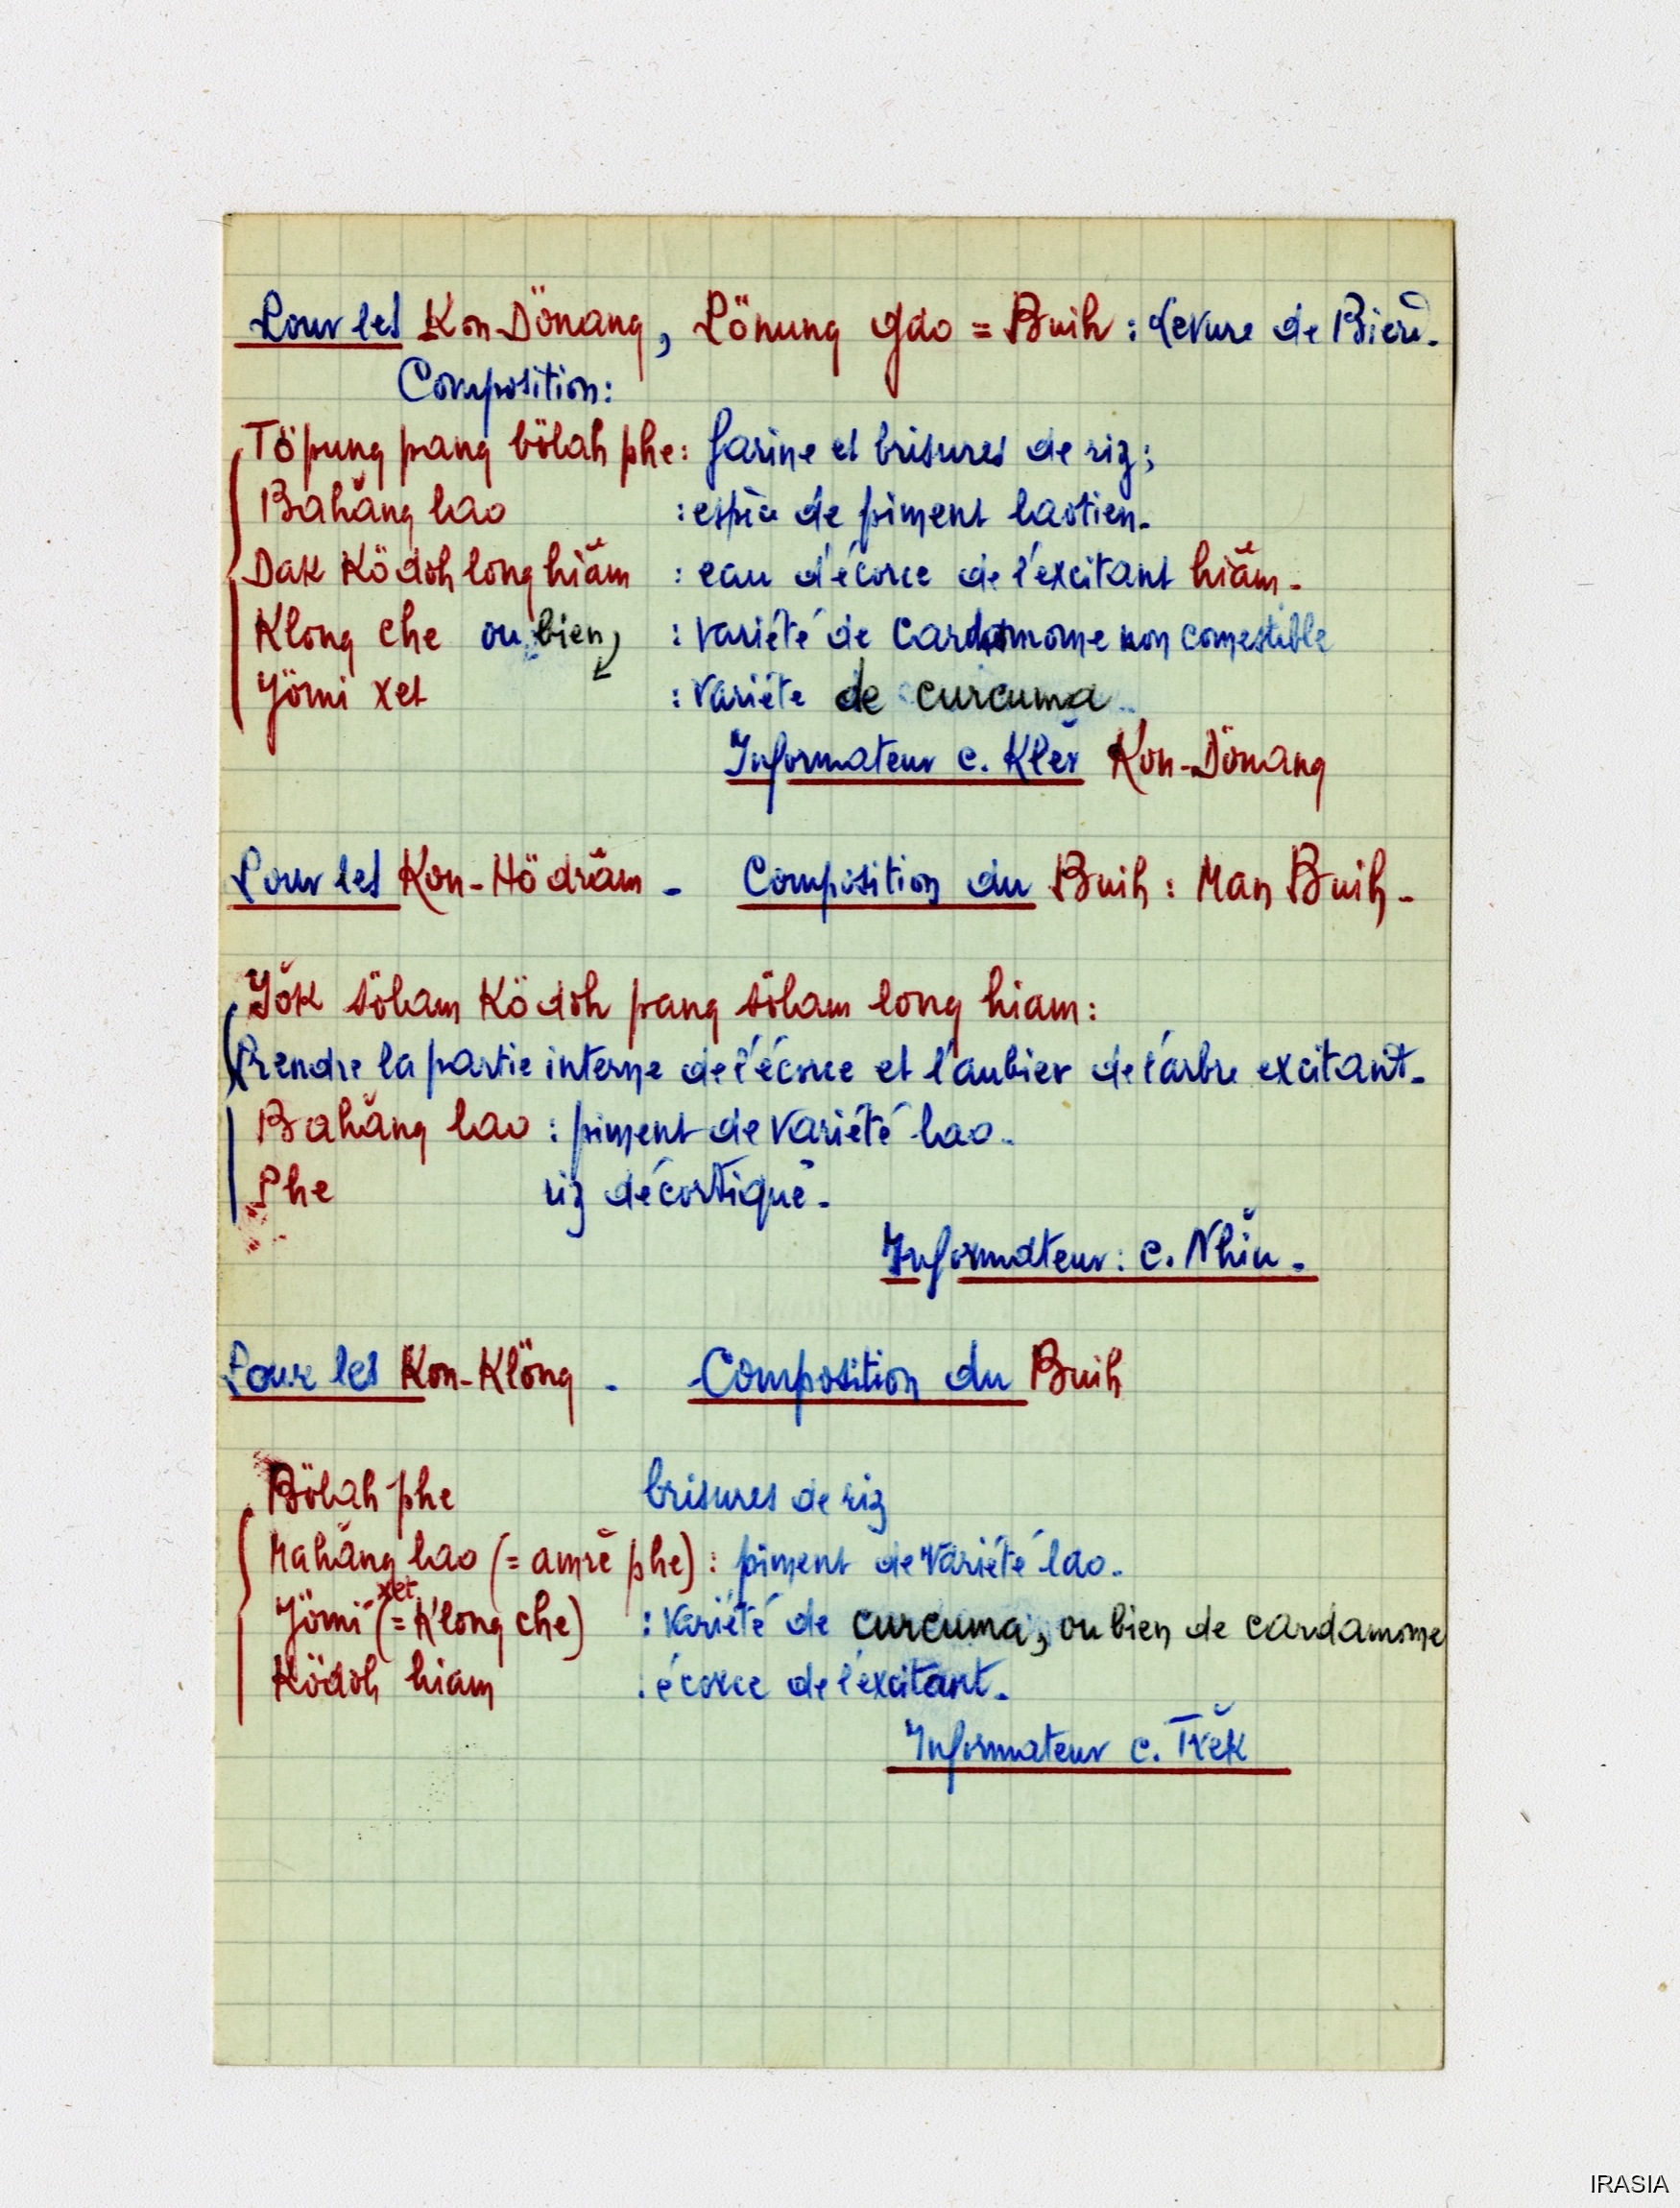 Pour les Kon Dönang, Pönung gao = Buih : levure de Bière.
Composition:
Töpung pang bölah phe : farine et brisures de riz ;
Bahăng lao : espèce de piment laotien.
Dak Ködoh long hiăm : eau d'écorce de l'excitant hiăm.
Klong che ou bien, : variété de cardamome non comestible
Yörmi xet : variété de curcuma
Informateur c. Klĕr Kon-Dönang
Pour les Kon-Hödrăm - Composition du Buih : Man Buih -
Yŏk sölam Ködoh pang sölam long hiam :
Prendre la partie interne de l'écorce et l'aubier de l'arbre excitant.
Bahăng lao : piment de variété lao.
Phe riz décortiqué.
Informateur : c. Nhĭu.
Pour les Kon-Klöng . Composition du Buih
Bölah phe brisures de riz
Mahăng lao (= amrĕ phe) : piment de variété lao.
Yörmi xet (= K'long che) : variété de curcuma, ou bien de cardamome
Ködoh hiam : écorce de l'excitant.
Informateur c. Trĕk
IRASIA